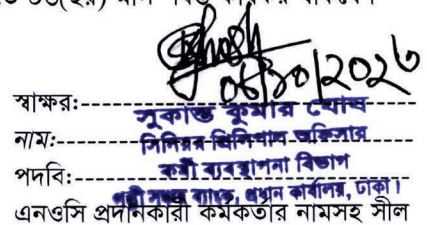 Ghosh
০৬/১০/২০২৩
স্বাক্ষর:
সুকান্ত কুমার ঘোষ
নাম:
সিনিয়র প্রিন্সিপাল অফিসার
পদবি:
কর্মী ব্যবস্থাপনা বিভাগ
পল্লী সঞ্চয় ব্যাংক, প্রধান কার্যালয়, ঢাকা।
এনওসি প্রদানকারী কর্মকর্তার নামসহ সীল